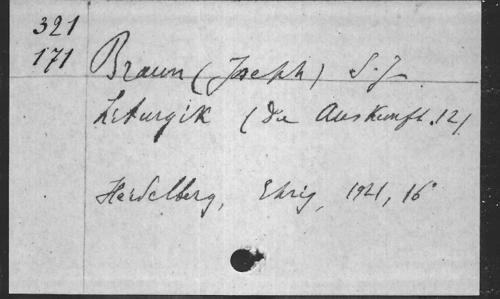 321
171
Braun (Joseph) S.J.
Liturgik (Die Auskunft. 12)
Heidelberg, Ehrig, 1921, 16°